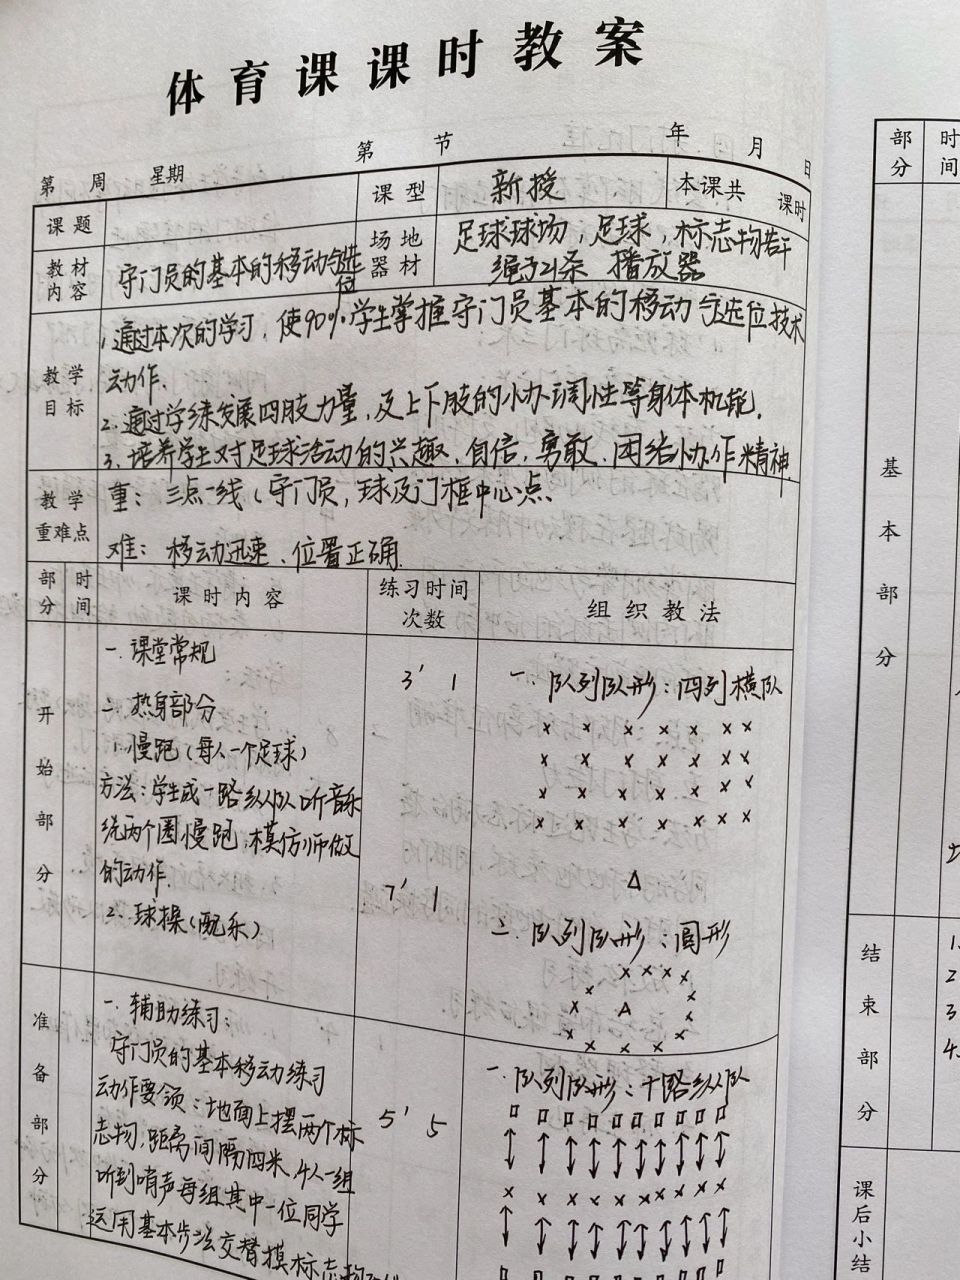 体育课课时教案
第 周 星期 第 节 年 月 日
课题 课型 新授 本课共 课时
教材内容 守门员的基本的移动与选位 场地器材 足球球场,足球,标志物若干
绳子21条 播放器
教学目标
1.通过本次的学习,使90%学生掌握守门员基本的移动与选位技术
动作.
2.通过学练发展四肢力量,及上下肢的协调性等身体机能.
3.培养学生对足球活动的兴趣、自信,勇敢、团结协作精神.
教学重难点
重:三点一线(守门员,球及门框中心点、
难:移动迅速、位置正确.
部分 时间 课时内容 练习时间次数 组织教法
开始部分
一.课堂常规
3' 1
二.热身部分
1.慢跑(每人一个足球)
方法:学生成一路纵队听音乐
绕两个圈慢跑,模仿师做
的动作.
7' 1
2.球操(配乐)
一.队列队形:四列横队
二.队列队形:圆形
准备部分
一.辅助练习:
守门员的基本移动练习
动作要领:地面上摆两个标
志物,距离间隔四米、4人一组
听到哨声每组其中一位同学
运用基本步法交替摸标志物
5' 5
一.队列队形:十路纵队
部分 时间
基本部分
结束部分
1.
2
3
4
课后小结